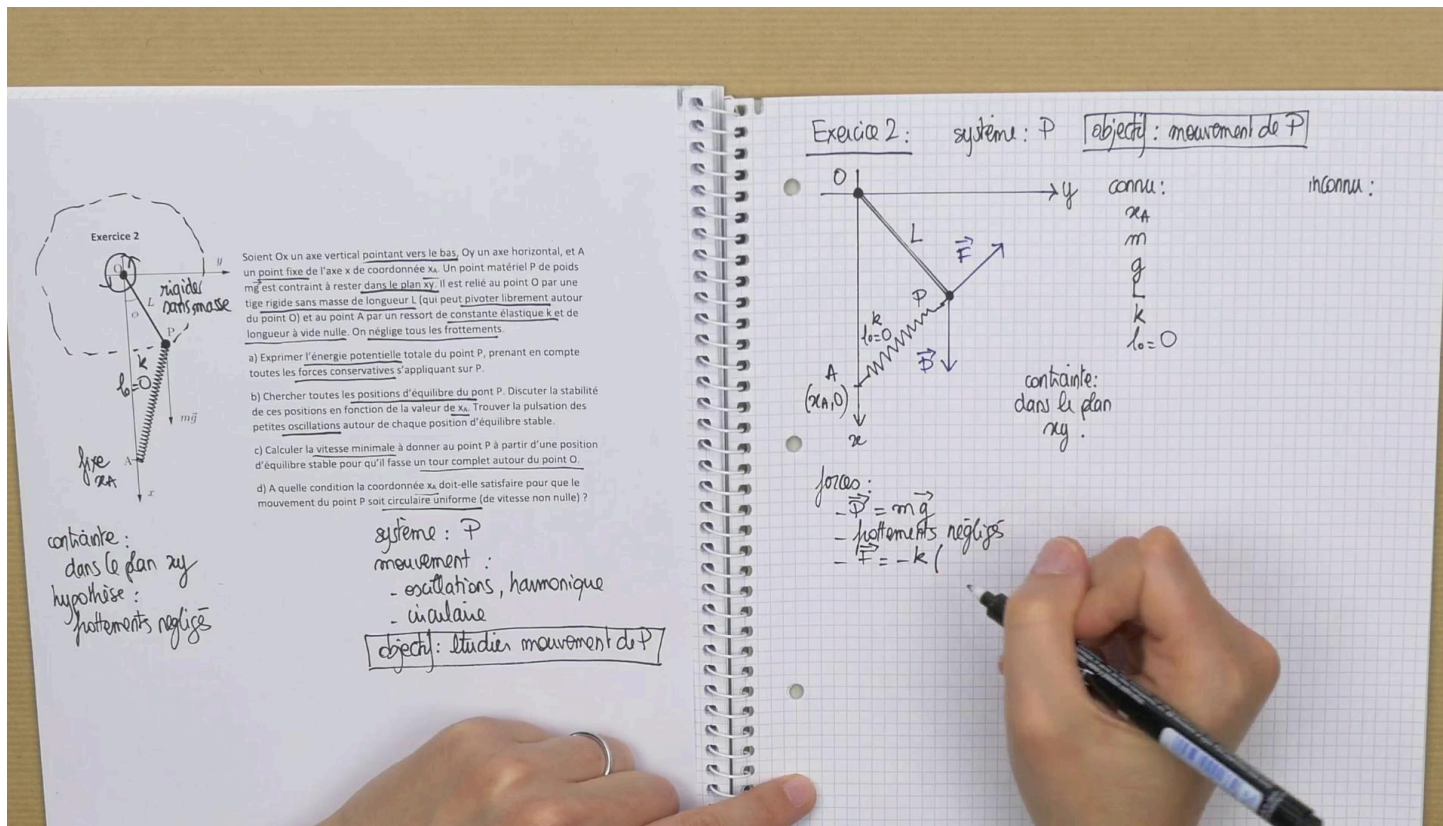 Exercice 2
O
y
L
rigide
sans masse
O
P
k
l₀=0
mg⃗
fixe
xA
A
x
Soient Ox un axe vertical pointant vers le bas, Oy un axe horizontal, et A
un point fixe de l'axe x de coordonnée xA. Un point matériel P de poids
mg⃗ est contraint à rester dans le plan xy. Il est relié au point O par une
tige rigide sans masse de longueur L (qui peut pivoter librement autour
du point O) et au point A par un ressort de constante élastique k et de
longueur à vide nulle. On néglige tous les frottements.
a) Exprimer l'énergie potentielle totale du point P, prenant en compte
toutes les forces conservatives s'appliquant sur P.
b) Chercher toutes les positions d'équilibre du pont P. Discuter la stabilité
de ces positions en fonction de la valeur de xA. Trouver la pulsation des
petites oscillations autour de chaque position d'équilibre stable.
c) Calculer la vitesse minimale à donner au point P à partir d'une position
d'équilibre stable pour qu'il fasse un tour complet autour du point O.
d) A quelle condition la coordonnée xA doit-elle satisfaire pour que le
mouvement du point P soit circulaire uniforme (de vitesse non nulle) ?
contrainte :
dans le plan xy
hypothèse :
frottements négligés
système : P
mouvement :
- oscillations, harmonique
- circulaire
objectif : étudier mouvement de P
Exercice 2 : système : P objectif : mouvement de P
O
y
L
F⃗
P
k
l₀=0
P⃗
A
(xA,0)
x
connu :
xA
m
g
L
k
l₀=0
inconnu :
contrainte :
dans le plan
xy.
forces :
- P⃗ = mg⃗
- frottements négligés
- F⃗ = -k(